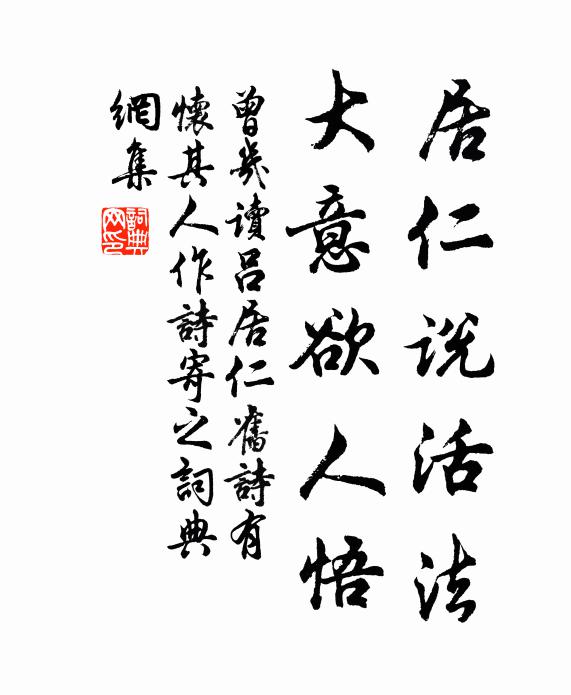 居仁说活法
大意欲人悟
曾幾讀呂居仁舊詩有
懷其人作詩寄之詞典
網集
詞典
网印